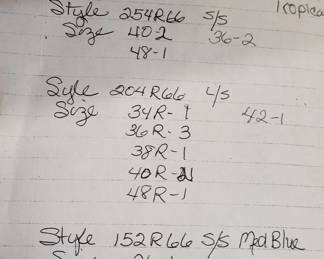 Style 254R66 S/S Tropica
Size 40-2 36-2
48-1
Syle 204R66 L/S
Size 34R-1 42-1
36R-3
38R-1
40R-
48R-1
Style 152R66 S/S Med Blue